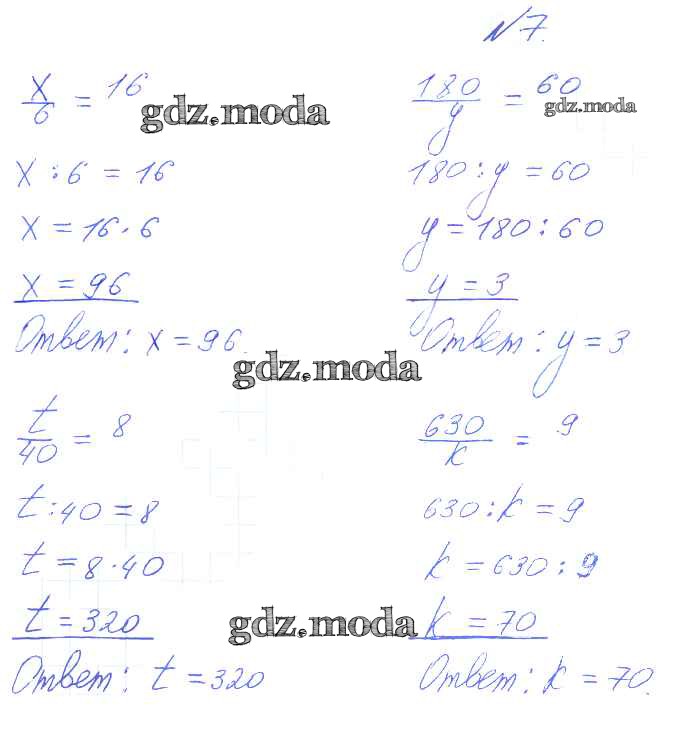 №7.
x/6 = 16
gdz.moda
x : 6 = 16
x = 16 · 6
x = 96
Ответ: x = 96.
180/y = 60
gdz.moda
180 : y = 60
y = 180 : 60
y = 3
Ответ: y = 3
gdz.moda
t/40 = 8
t : 40 = 8
t = 8 · 40
t = 320
Ответ: t = 320
630/k = 9
630 : k = 9
k = 630 : 9
gdz.moda
k = 70
Ответ: k = 70.